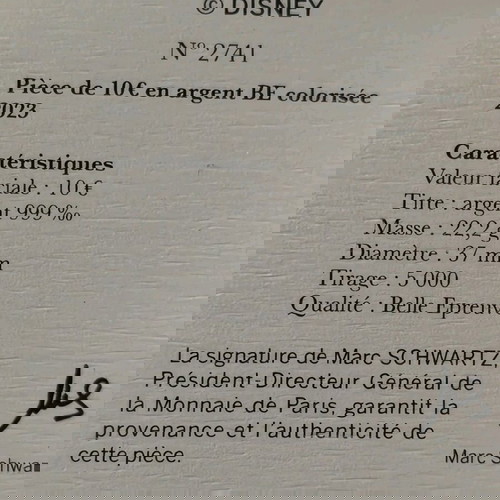 © DISNEY
Pièce de 10€ en argent BE colorisée
2023
Caractéristiques
Valeur faciale : 10€
Titre : argent 999‰
Masse : 22,2 g
Diamètre : 37 mm
Tirage : 5 000
Qualité : Belle Epreuv
La signature de Marc SCHWARTZ,
Président-Directeur Général de
la Monnaie de Paris, garantit la
provenance et l'authenticité de
cette pièce.
Marc S